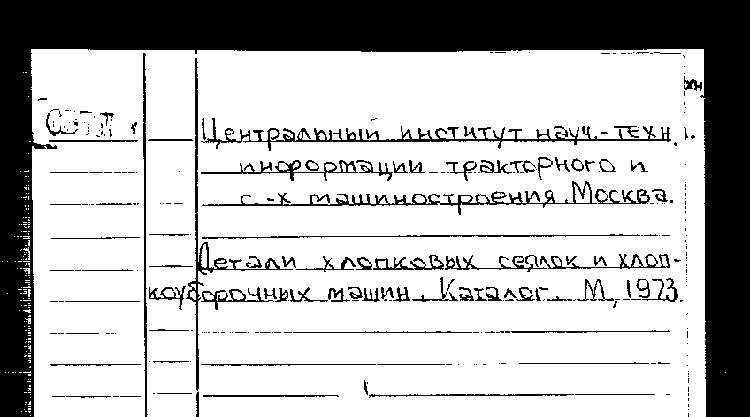 Центральный институт науч.-техн.
информации тракторного и
с.-х машиностроения. Москва.
Детали хлопковых сеялок и хлоп-
коуборочных машин. Каталог. М, 1973